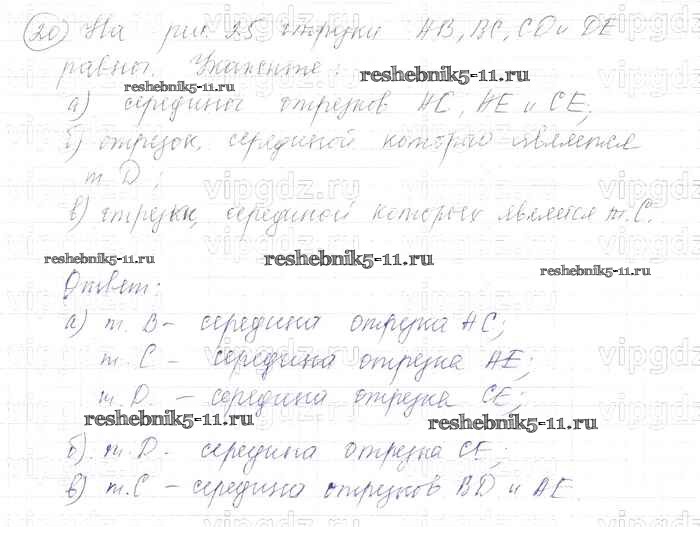 20) На рис. 25 отрезки AB, BC, CD и DE
равны. Укажите:
reshebnik5-11.ru
reshebnik5-11.ru
а) середины отрезков AC, AE и CE;
б) отрезок, серединой которого является
т. D;
vipgdz.ru
в) отрезки, серединой которых является т. C.
reshebnik5-11.ru
reshebnik5-11.ru
reshebnik5-11.ru
Ответ:
а) т. B – середина отрезка AC;
т. C – середина отрезка AE;
т. D. – середина отрезка CE;
reshebnik5-11.ru
reshebnik5-11.ru
б). т. D - середина отрезка CE;
в) т. C – середина отрезков BD и AE.